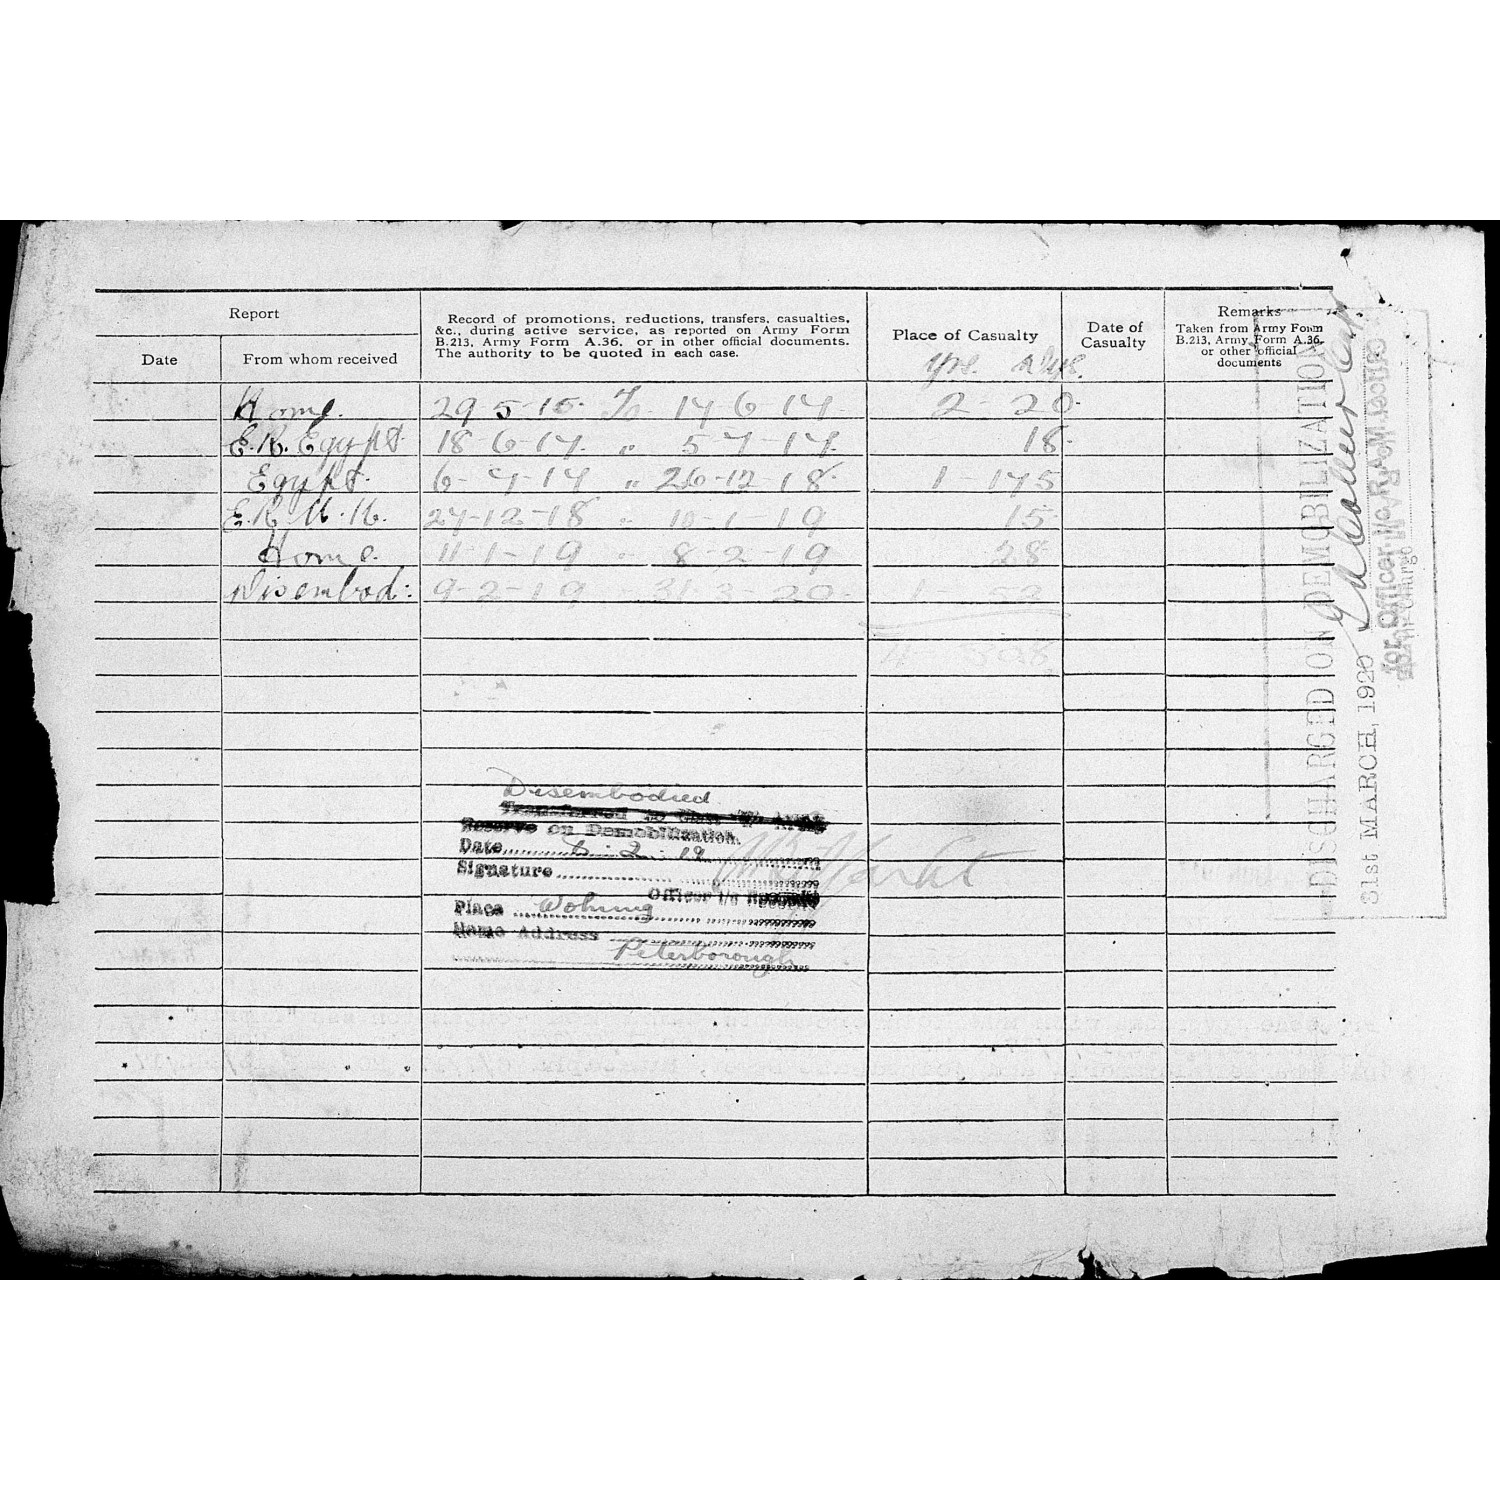 Report
Date
From whom received
Record of promotions, reductions, transfers, casualties,
&c., during active service, as reported on Army Form
B.213, Army Form A.36. or in other official documents.
The authority to be quoted in each case.
Place of Casualty
Date of
Casualty
Remarks
Taken from Army Form
B.213, Army Form A.36.
or other official
documents
yrs. Days.
Home. 29-5-15. To 17-6-17. 2-20.
E.R. Egypt. 18-6-17. " 5-7-17. 18.
Egypt. 6-7-17 " 26-12-18. 1-175
E.R. U.K. 27-12-18 " 10-1-19 15
Home. 11-1-19 " 8-2-19 28
Disembod: 9-2-19 - 31-3-20. 1-52
Disembodied
Transferred to Class "Z" Army
Reserve on Demobilization.
Date 8-2-19
Signature
Officer i/c Records
Place Woking
Home Address
Peterborough
DISCHARGED ON DEMOBILIZATION
31st MARCH, 1920
for Officer